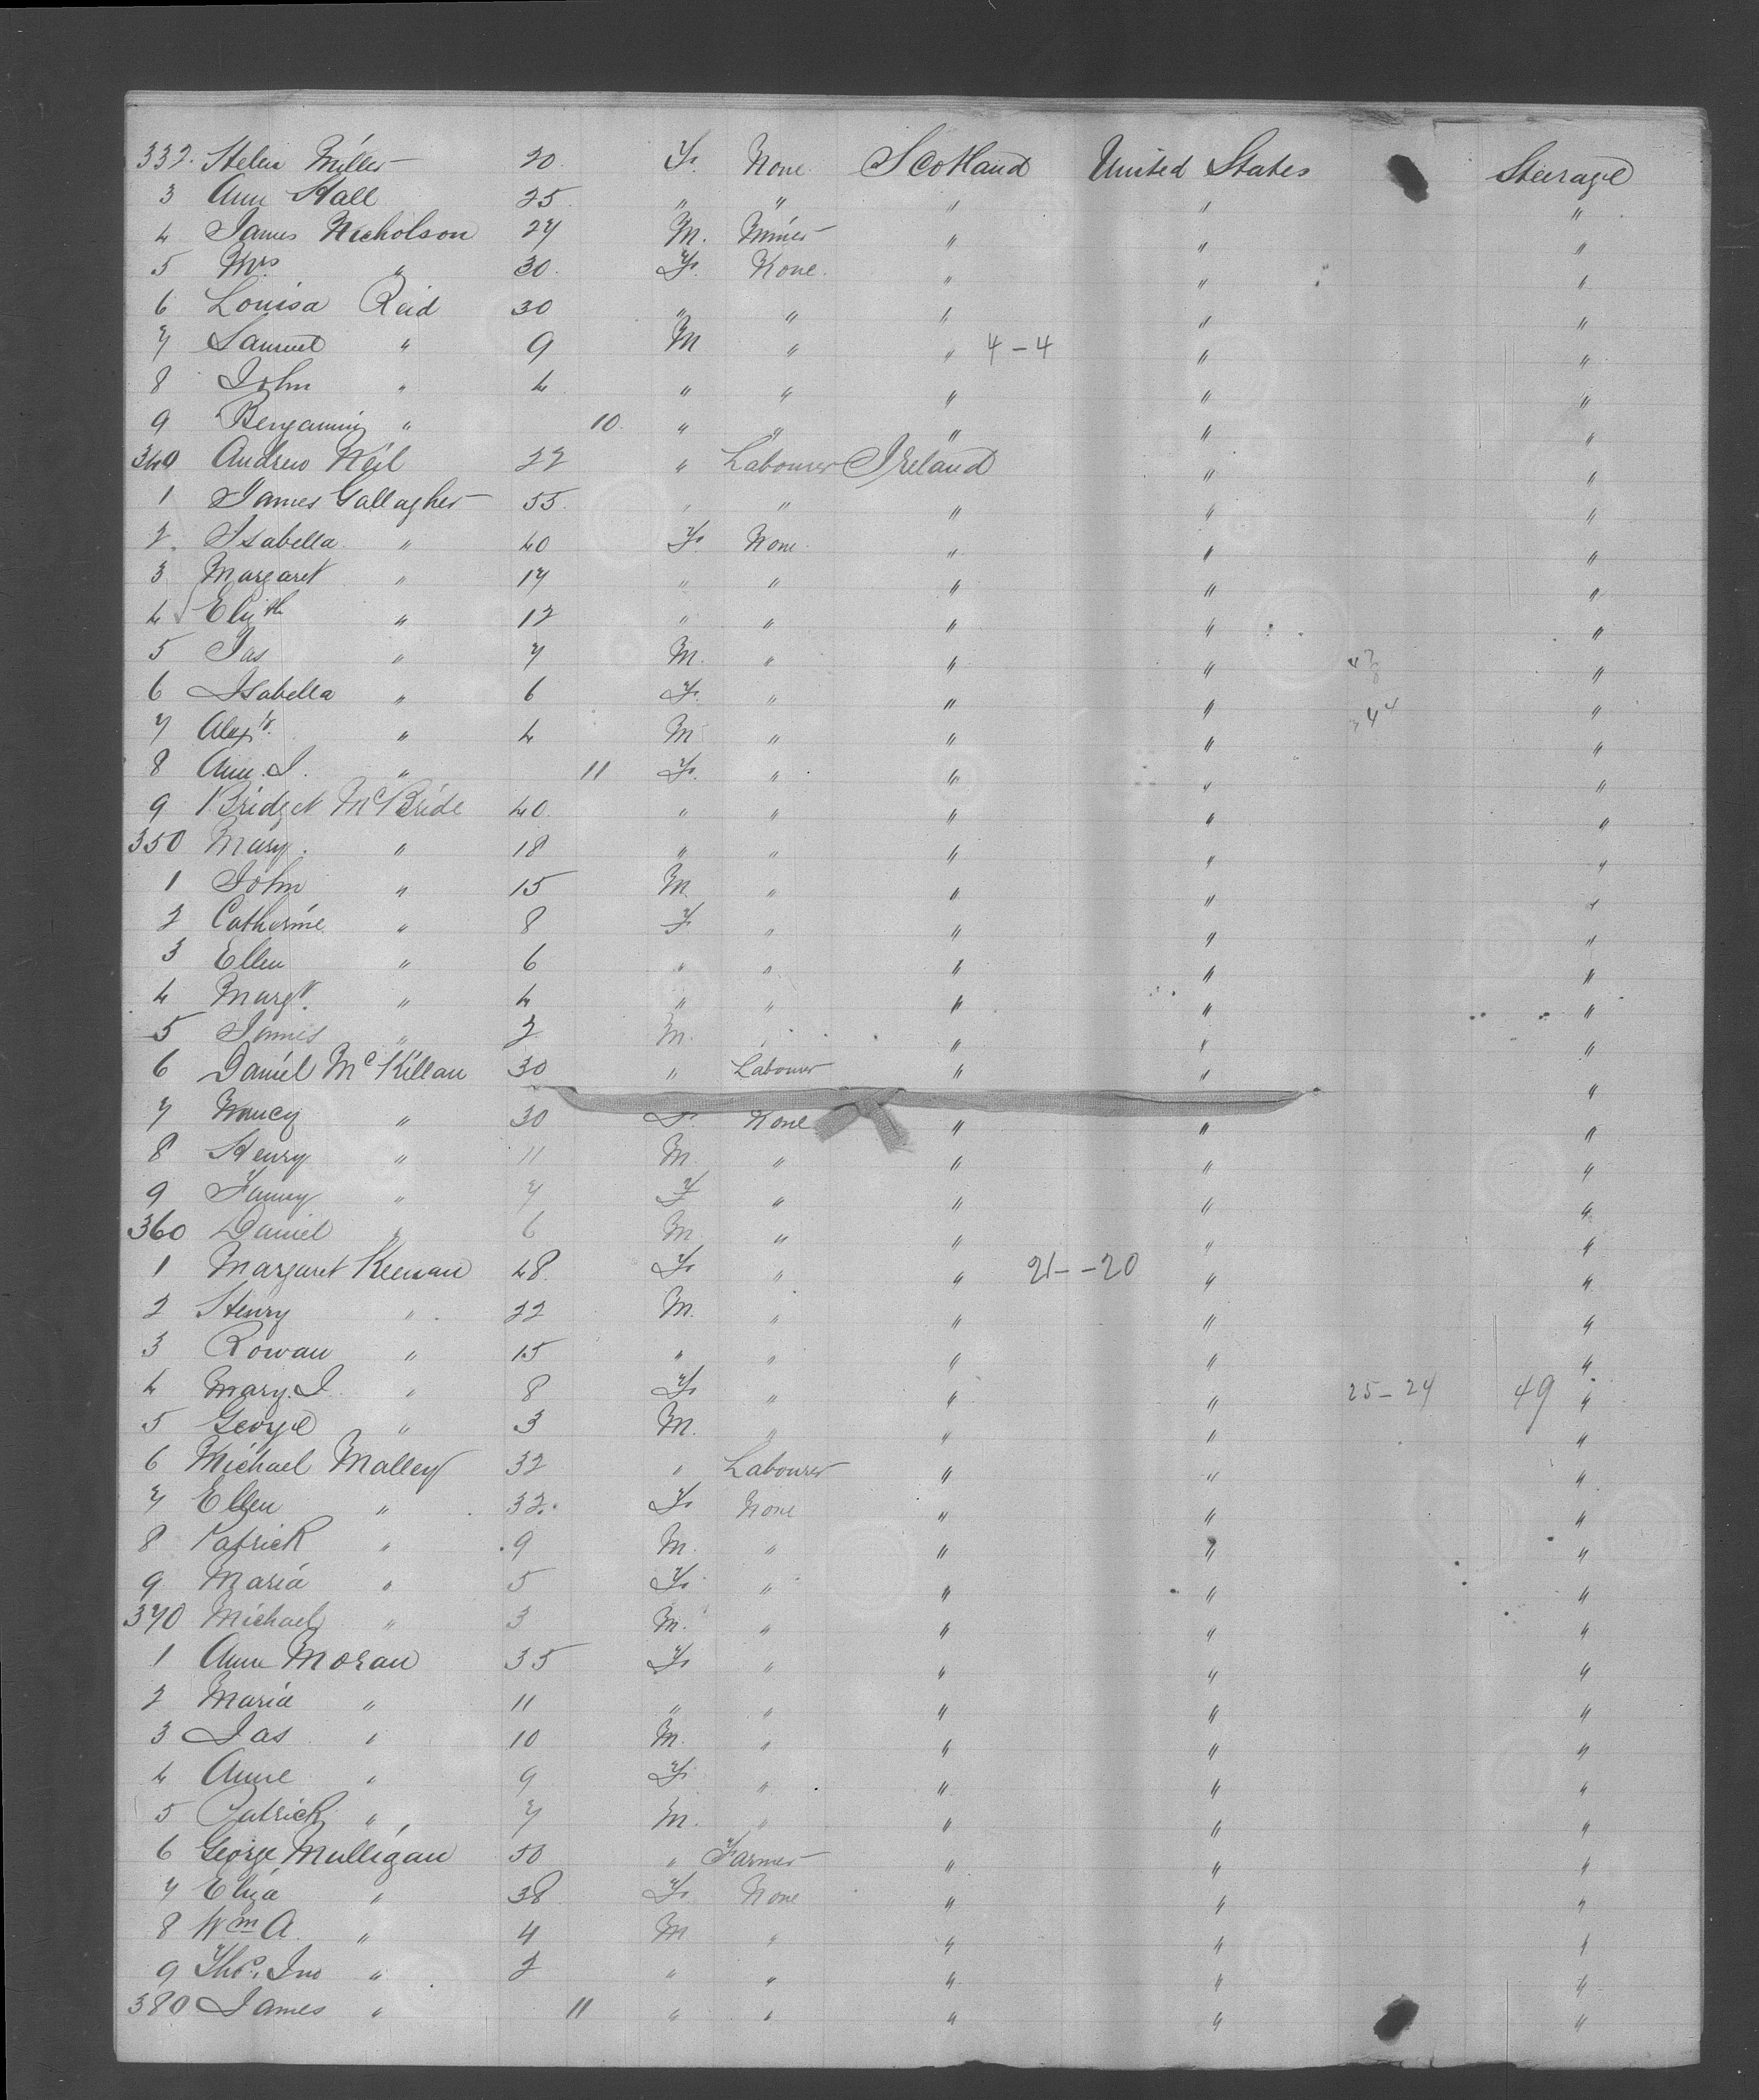 332. Helen Miller 20. F. None. Scotland United States Steerage
3 Ann Hall 25. " " " " "
4 James Nicholson 27 M. Miner " " "
5 Mrs " 30. F. None. " " "
6 Louisa Reid 30 " " " " "
7 Samuel " 9 M " " 4-4 " "
8 John " 4 " " " " "
9 Benjamin " 10. " " " " "
340 Andrew Neil 22 " Labourer Ireland " "
1 James Gallagher 55. " " " " "
2. Isabella " 40 F. None. " " "
3 Margaret " 17 " " " " "
4 Elizth " 12 " " " " "
5 Jas " 7 M. " " " "
6 Isabella " 6 F. " " " "
7 Alexr. " 4 M " " " 44 "
8 Ann. J. " 11 F. " " " "
9 Bridget McBride 40. " " " " "
350 Mary. " 18 " " " " "
1 John " 15 M. " " " "
2 Catherine " 8 F " " " "
3 Ellen " 6 " " " " "
4 Margt. " 4 " " " " "
5 James " 2 M. " " " "
6 Daniel McKillan 30 " Labourer " " "
7 Nancy " 30 F. None " " "
8 Henry " 11 M " " " "
9 Fanny " 7 F " " " "
360 Daniel " 6 M " " " "
1 Margaret Keenan 48. F. " " 21--20 " "
2 Henry " 22 M. " " " "
3 Rowan " 15 " " " " "
4 Mary. J. " 8 F. " " " 25-24 49 "
5 George " 3 M. " " " "
6 Michael Malley 32 " Labourer " " "
7 Ellen " 32. F. None " " "
8 Patrick " 9 M. " " " "
9 Maria " 5 F. " " " "
370 Michael " 3 M. " " " "
1 Ann Moran 35 F. " " " "
2 Maria " 11 " " " " "
3 Jas " 10 M. " " " "
4 Anne " 9 F. " " " "
5 Patrick " 7 M. " " " "
6 George Mulligan 50 " Farmer " " "
7 Eliza " 38 F. None " " "
8 Wm A. " 4 M " " " "
9 Thos. Jno " 2 " " " " "
380 James " 11 " " " " "